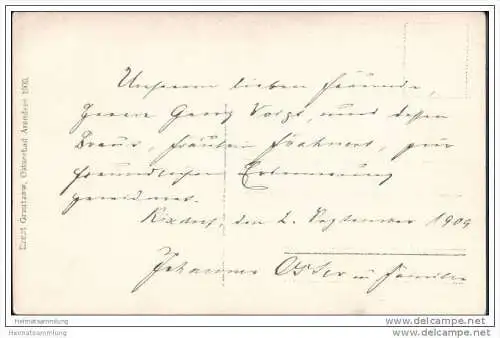 Unserm lieben Freunde,
Herrn Georg Voigt, und dessen
Braut, Fräulein Frahnert, zur
freundlichen Erinnerung
gewidmet.
Rixdorf, den 2. September 1909
Johannes u Familie
Ernst Grattzow, Ostseebad Arendsee 1909.
Heimatsammlung
Heimatsammlung
http://www.delcampe.net